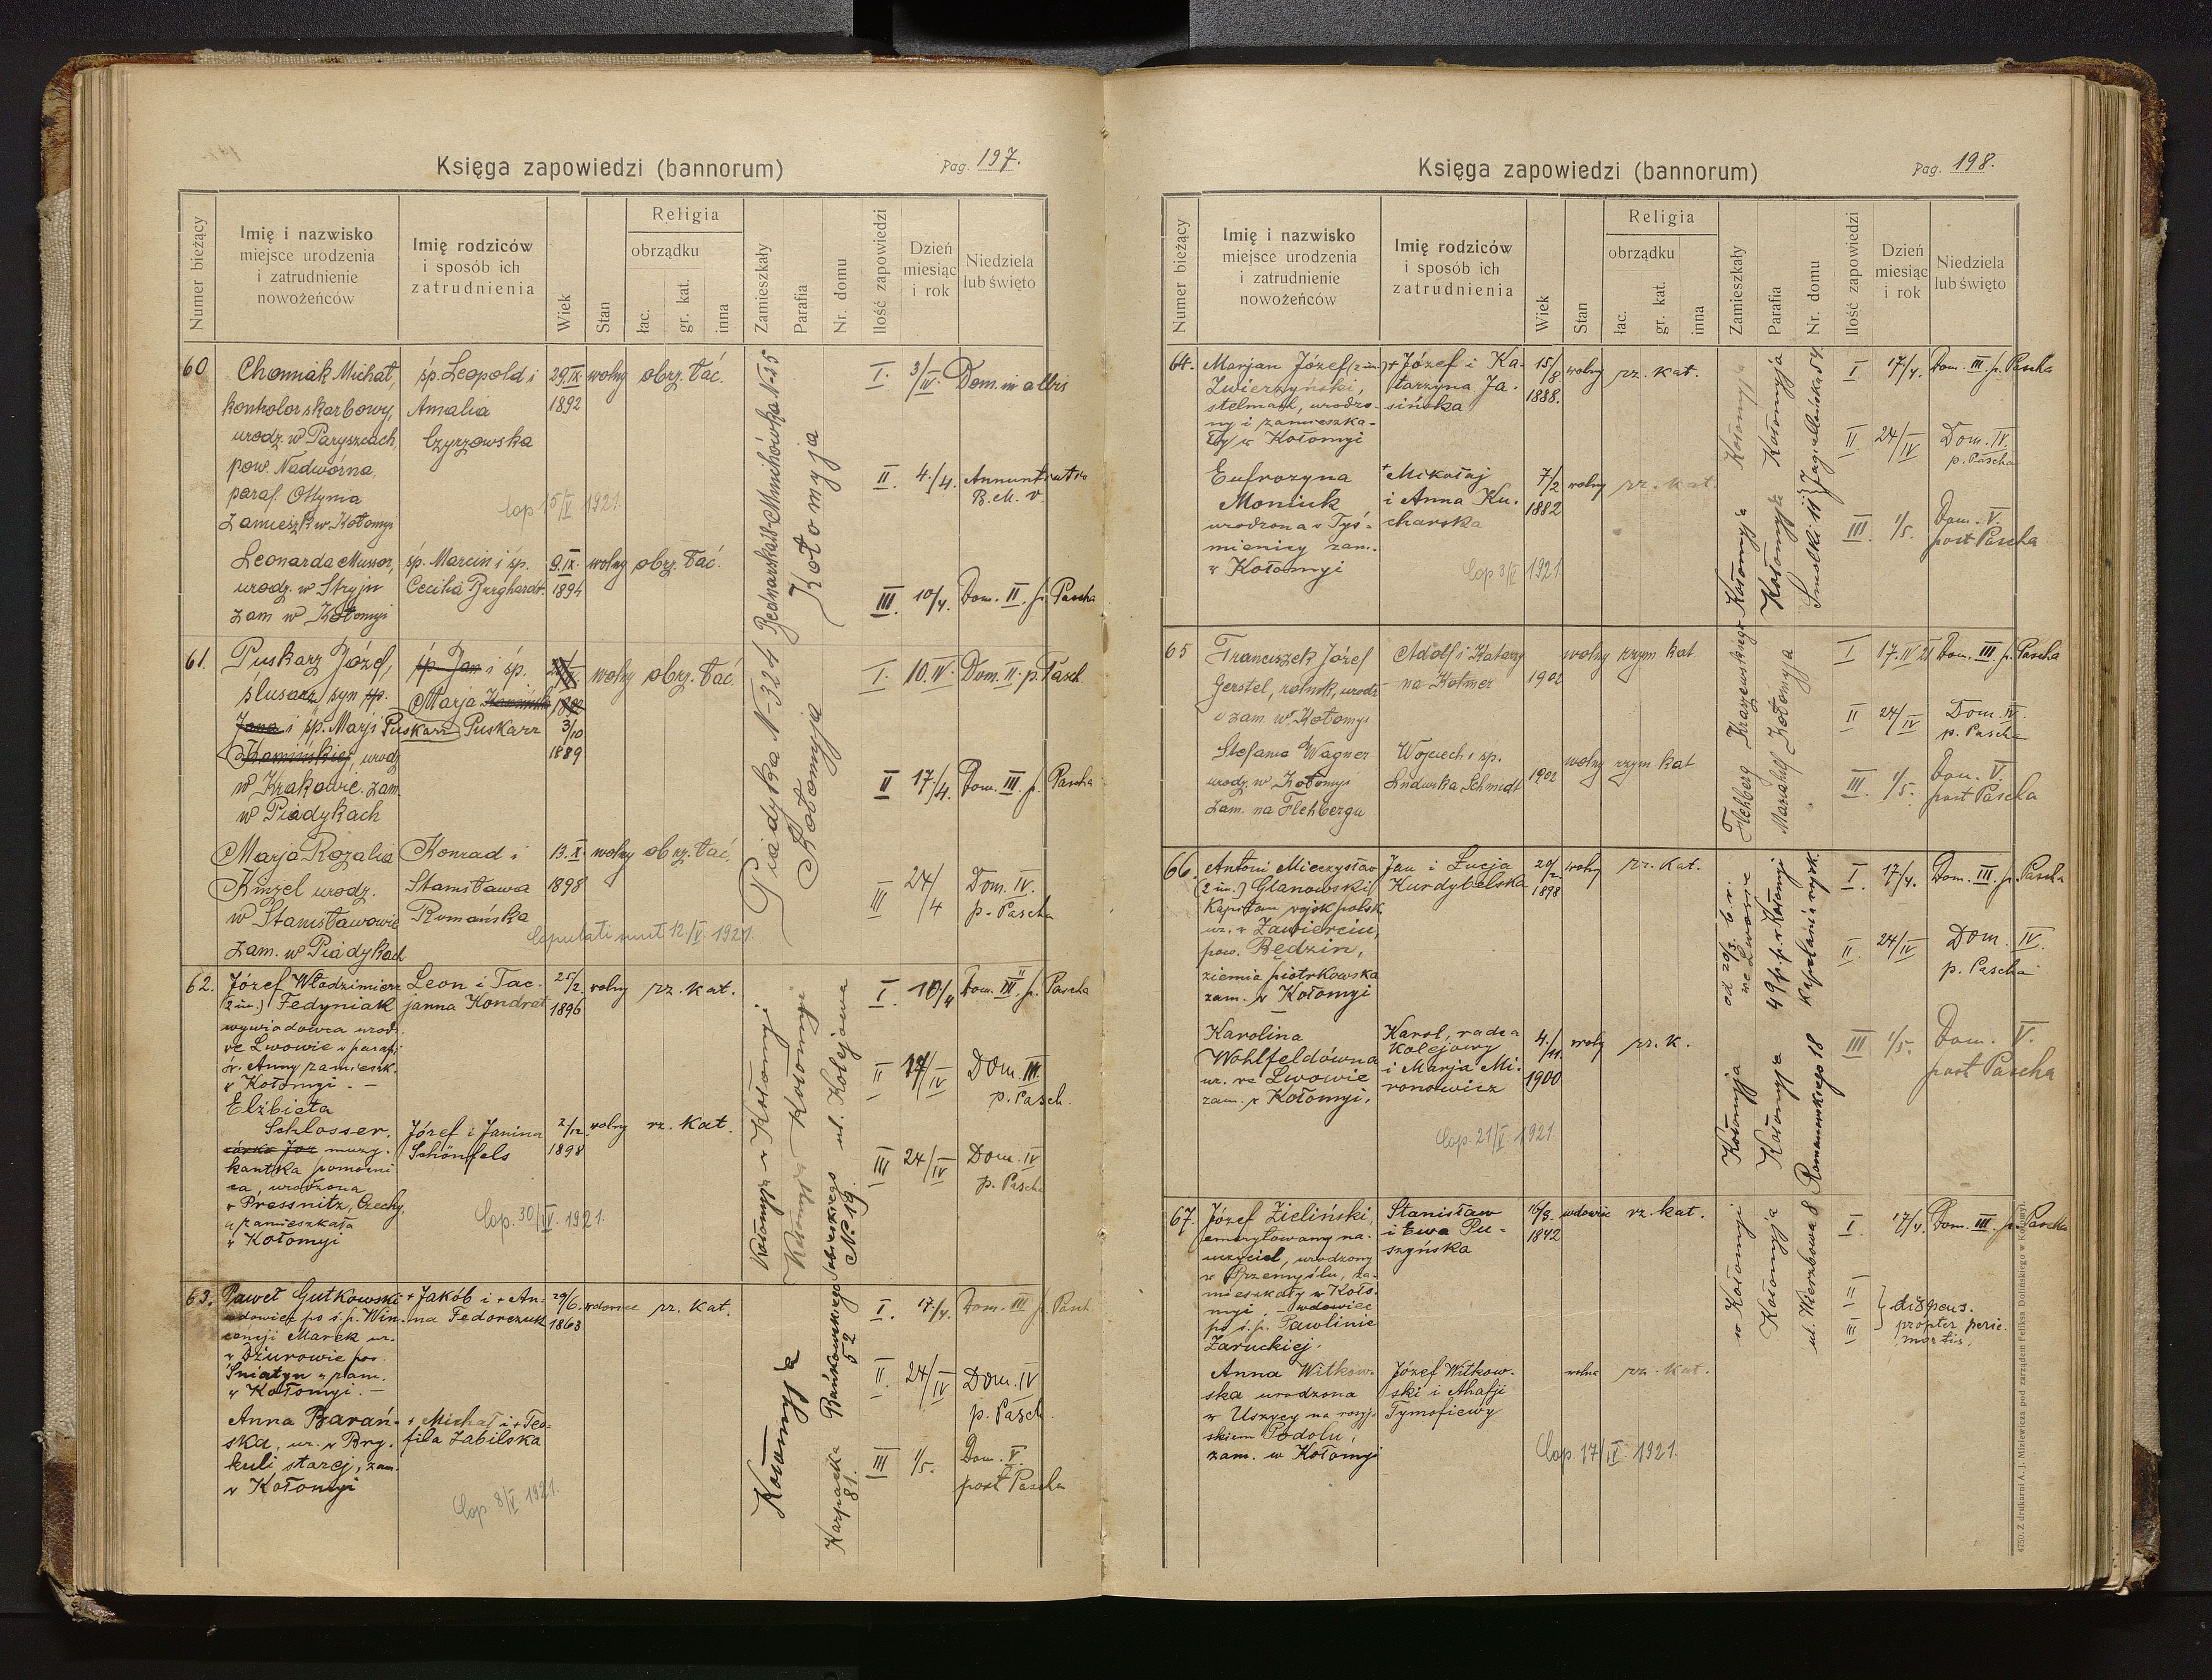 Księga zapowiedzi (bannorum)
Pag. 197.
Numer bieżący
Imię i nazwisko
miejsce urodzenia
i zatrudnienie
nowożeńców
Imię rodziców
i sposób ich
zatrudnienia
Wiek
Stan
Religia
obrządku
łac.
gr. kat.
inna
Zamieszkały
Parafia
Nr. domu
Ilość zapowiedzi
Dzień
miesiąc
i rok
Niedziela
lub święto
60
Chomiak Michał,
kontrolor skarbowy,
urodz. w Paryszczach,
pow. Nadwórna,
paraf. Ottynia
zamieszk w Kołomyi
śp. Leopold i
Amalia
Czyrzowska
29.IX.
1892
wolny
obrz. łać.
Cop 15/V 1921.
Leonarda Musser,
urodz. w Stryju
zam w Kołomyi
śp. Marcin i śp.
Cecilia Burghardt.
9.IX.
1894
wolny
obrz. łać.
Kołomyja
I. 3/IV. Dom. in albis
II 4./4. Annuntiatio
B. M. V.
III. 10/4. Dom. II. p. Pascha
61.
Puskarz Józef,
ślusarz, syn śp.
Jana i śp. Marji Puskarz
Kamińskiej, urodz
w Krakowie. zam.
w Piadykach
śp. Jan i śp.
Marja Kamińska
Puskarz
3/10
1889
wolny
obrz. łać.
Marja Rozalia
Kinzel urodz.
w Stanisławowie
zam. w Piadykach
Konrad i
Stanisława
Romańska
13.X.
1898
wolny
obrz. łać.
Copulati sunt 12/V. 1921.
Piadyka N-324
Kołomyja
I. 10.IV. Dom. II. p. Pasch
II 17/4. Dom. III. p. Pascha
III 24/4 Dom. IV.
p. Pascha
62.
Józef Włodzimierz
(2 im.) Fedyniak
wywiadowca urodz.
we Lwowie w parafji
św. Anny zamieszk.
w Kołomyi. —
Leon i Tac-
janna Kondrat
25/2
1896
wolny
rz. kat.
Elżbieta
Schlosser.
córka Joz muzy-
kantka pomocni
ca, urodzona
w Pressnitz, Czechy,
a zamieszkała
w Kołomyi
Józef i Janina
Schönfels
2/12
1898
wolny
rz. kat.
Cop. 30/IV. 1921.
Kołomyja w Kołomyi
Kołomyja Kołomyi
Sobieskiego ul. Kolejowa
No 19.
I. 10/4 Dom. II p. Pascha
II 17/IV Dom. III.
p. Pasch.
III 24/IV Dom. IV
p. Pascha
63.
Paweł Gutkowski
wdowiec po ś.p. Win-
centji Marek ur.
w Dżurowie pow.
Śniatyn a zam.
w Kołomyi. —
+ Jakób i + An-
na Fedorczuk
29/6.
1863
wdowiec
rz. kat.
Anna Barań-
ska, ur. w Bry-
kuli starej, zam.
w Kołomyi
+ Michał i + Teo-
fila Zabilska
Cop. 8/V 1921.
Kołomyja
Karpacka
81.
52
I. 17/4. Dom. III p. Pasch.
II. 24/IV Dom. IV
p. Pasch.
III 1/5. Dom. V.
post Pascha
Księga zapowiedzi (bannorum)
Pag. 198.
Numer bieżący
Imię i nazwisko
miejsce urodzenia
i zatrudnienie
nowożeńców
Imię rodziców
i sposób ich
zatrudnienia
Wiek
Stan
Religia
obrządku
łac.
gr. kat.
inna
Zamieszkały
Parafia
Nr. domu
Ilość zapowiedzi
Dzień
miesiąc
i rok
Niedziela
lub święto
64.
Marjan Józef (2 im.)
Zwierzyński,
stelmach, urodzo-
ny i zamieszka-
ły w Kołomyi
+ Józef i Ka-
tarzyna Ja-
sińska
15/8
1888.
wolny
rz. kat.
Eufrozyna
Moniuk
urodzona w Tyś-
mienicy zam.
w Kołomyi
+ Mikołaj
i Anna Ku-
charska
7/2
1882
wolny
rz. kat
Cop 3/V 1921.
Kołomyja Kołomyja
Kołomyja Kołomyja
Smolki 11 Jagiellońska 54.
I 17/4. Dom. III. p. Pascha
II 24/IV Dom. IV.
p. Pascha
III. 1/5. Dom. V.
post Pascha
65
Franciszek Józef
Gerstel, rolnik, urodz
i zam. w Kołomyi
Adolf i Katarzy
na Kotmer
1902
wolny
rzym kat
Stefania Wagner
urodz. w Kołomyi
zam. na Flehbergu
Wojciech i śp.
Ludwika Schmidt
1902
wolny
rzym kat
Flehberg Kraszewskiego
Mariahilf Kołomyja
I 17.IV 21 Dom. III p. Pascha
II 24/IV Dom. IV.
p. Pascha
III. 1/5. Dom. V.
post Pascha
66.
Antoni Mieczysław
(2 im.) Glanowski
Kapitan wojsk polsk.
ur. w Zawierciu,
pow. Będzin,
ziemia piotrkowska
zam. w Kołomyi
Jan i Łucja
Kurdybelska
20/2
1898
wolny
rz. kat.
Karolina
Wohlfeldówna
ur. we Lwowie
zam. w Kołomyi.
Karol, radca
kolejowy
i Marja Mi-
ronowicz
4./11.
1900
wolny
rz. k.
Cop. 21/V 1921.
Kołomyja od 20/3 b. r.
we Lwowie
Kołomyja 49 p. p. w Kołomyi
Romanowskiego 18
I. 17/4. Dom. III. p. Pascha
II. 24/IV Dom. IV.
p. Pascha
III 1/5. Dom. V.
post Pascha
67.
Józef Zieliński,
emerytowany na-
uczyciel, urodzony
w Przemyślu, za-
mieszkały w Koło-
myi. — wdowiec
po ś.p. Pawlinie
Zaruckiej.
Stanisław
i Ewa Pu-
szyńska
16/3.
1842
wdowiec
rz. kat.
Anna Witkow-
ska urodzona
w Uszycy na rosyj-
skiem Podolu,
zam. w Kołomyi
Józef Witkow-
ski i Ahafji
Tymofiewy
wolna
rz. kat.
Cop. 17/IV 1921.
w Kołomyi
Kołomyja
ul. Wierzbowa 8
I. 17/4. Dom. III. p. Pascha
II
III
dispens.
propter peric.
mortis.
4750. Z drukarni A. J. Miziewicza pod zarządem Feliksa Dolińskiego w Kołomyi.